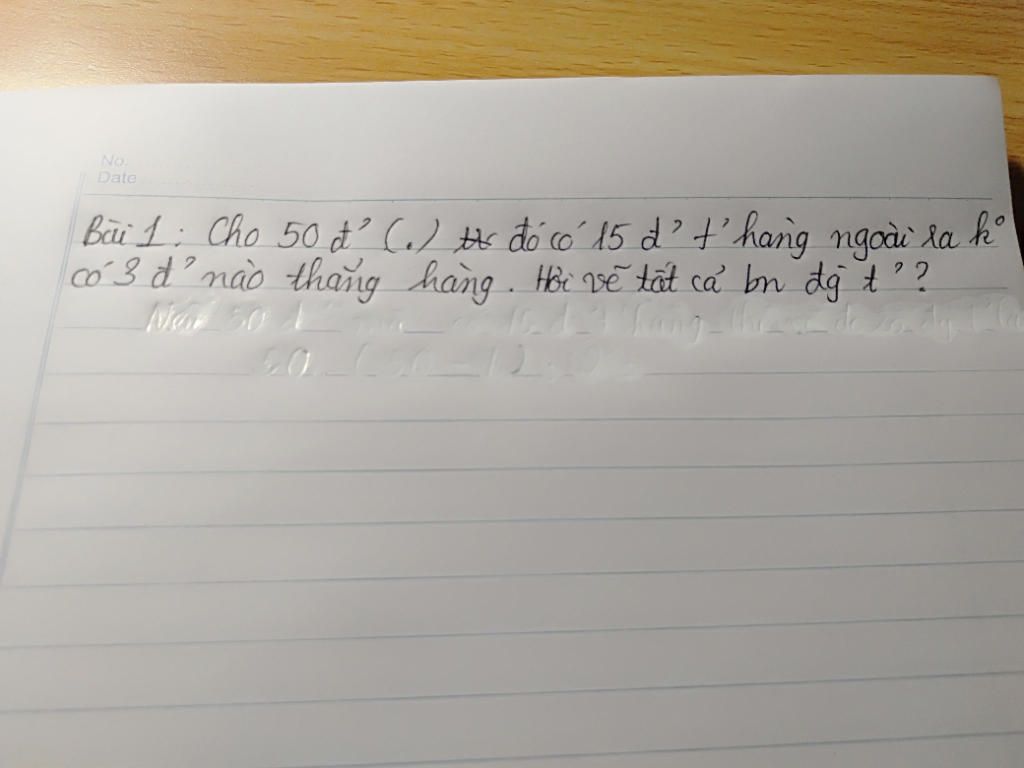 No.
Date
Bài 1: Cho 50 đ' (.) đó có 15 đ' t' hàng ngoài ra k°
có 3 đ' nào thẳng hàng. Hỏi vẽ tất cả bn đg t'?
50 đ'
50 (50 - 1) :